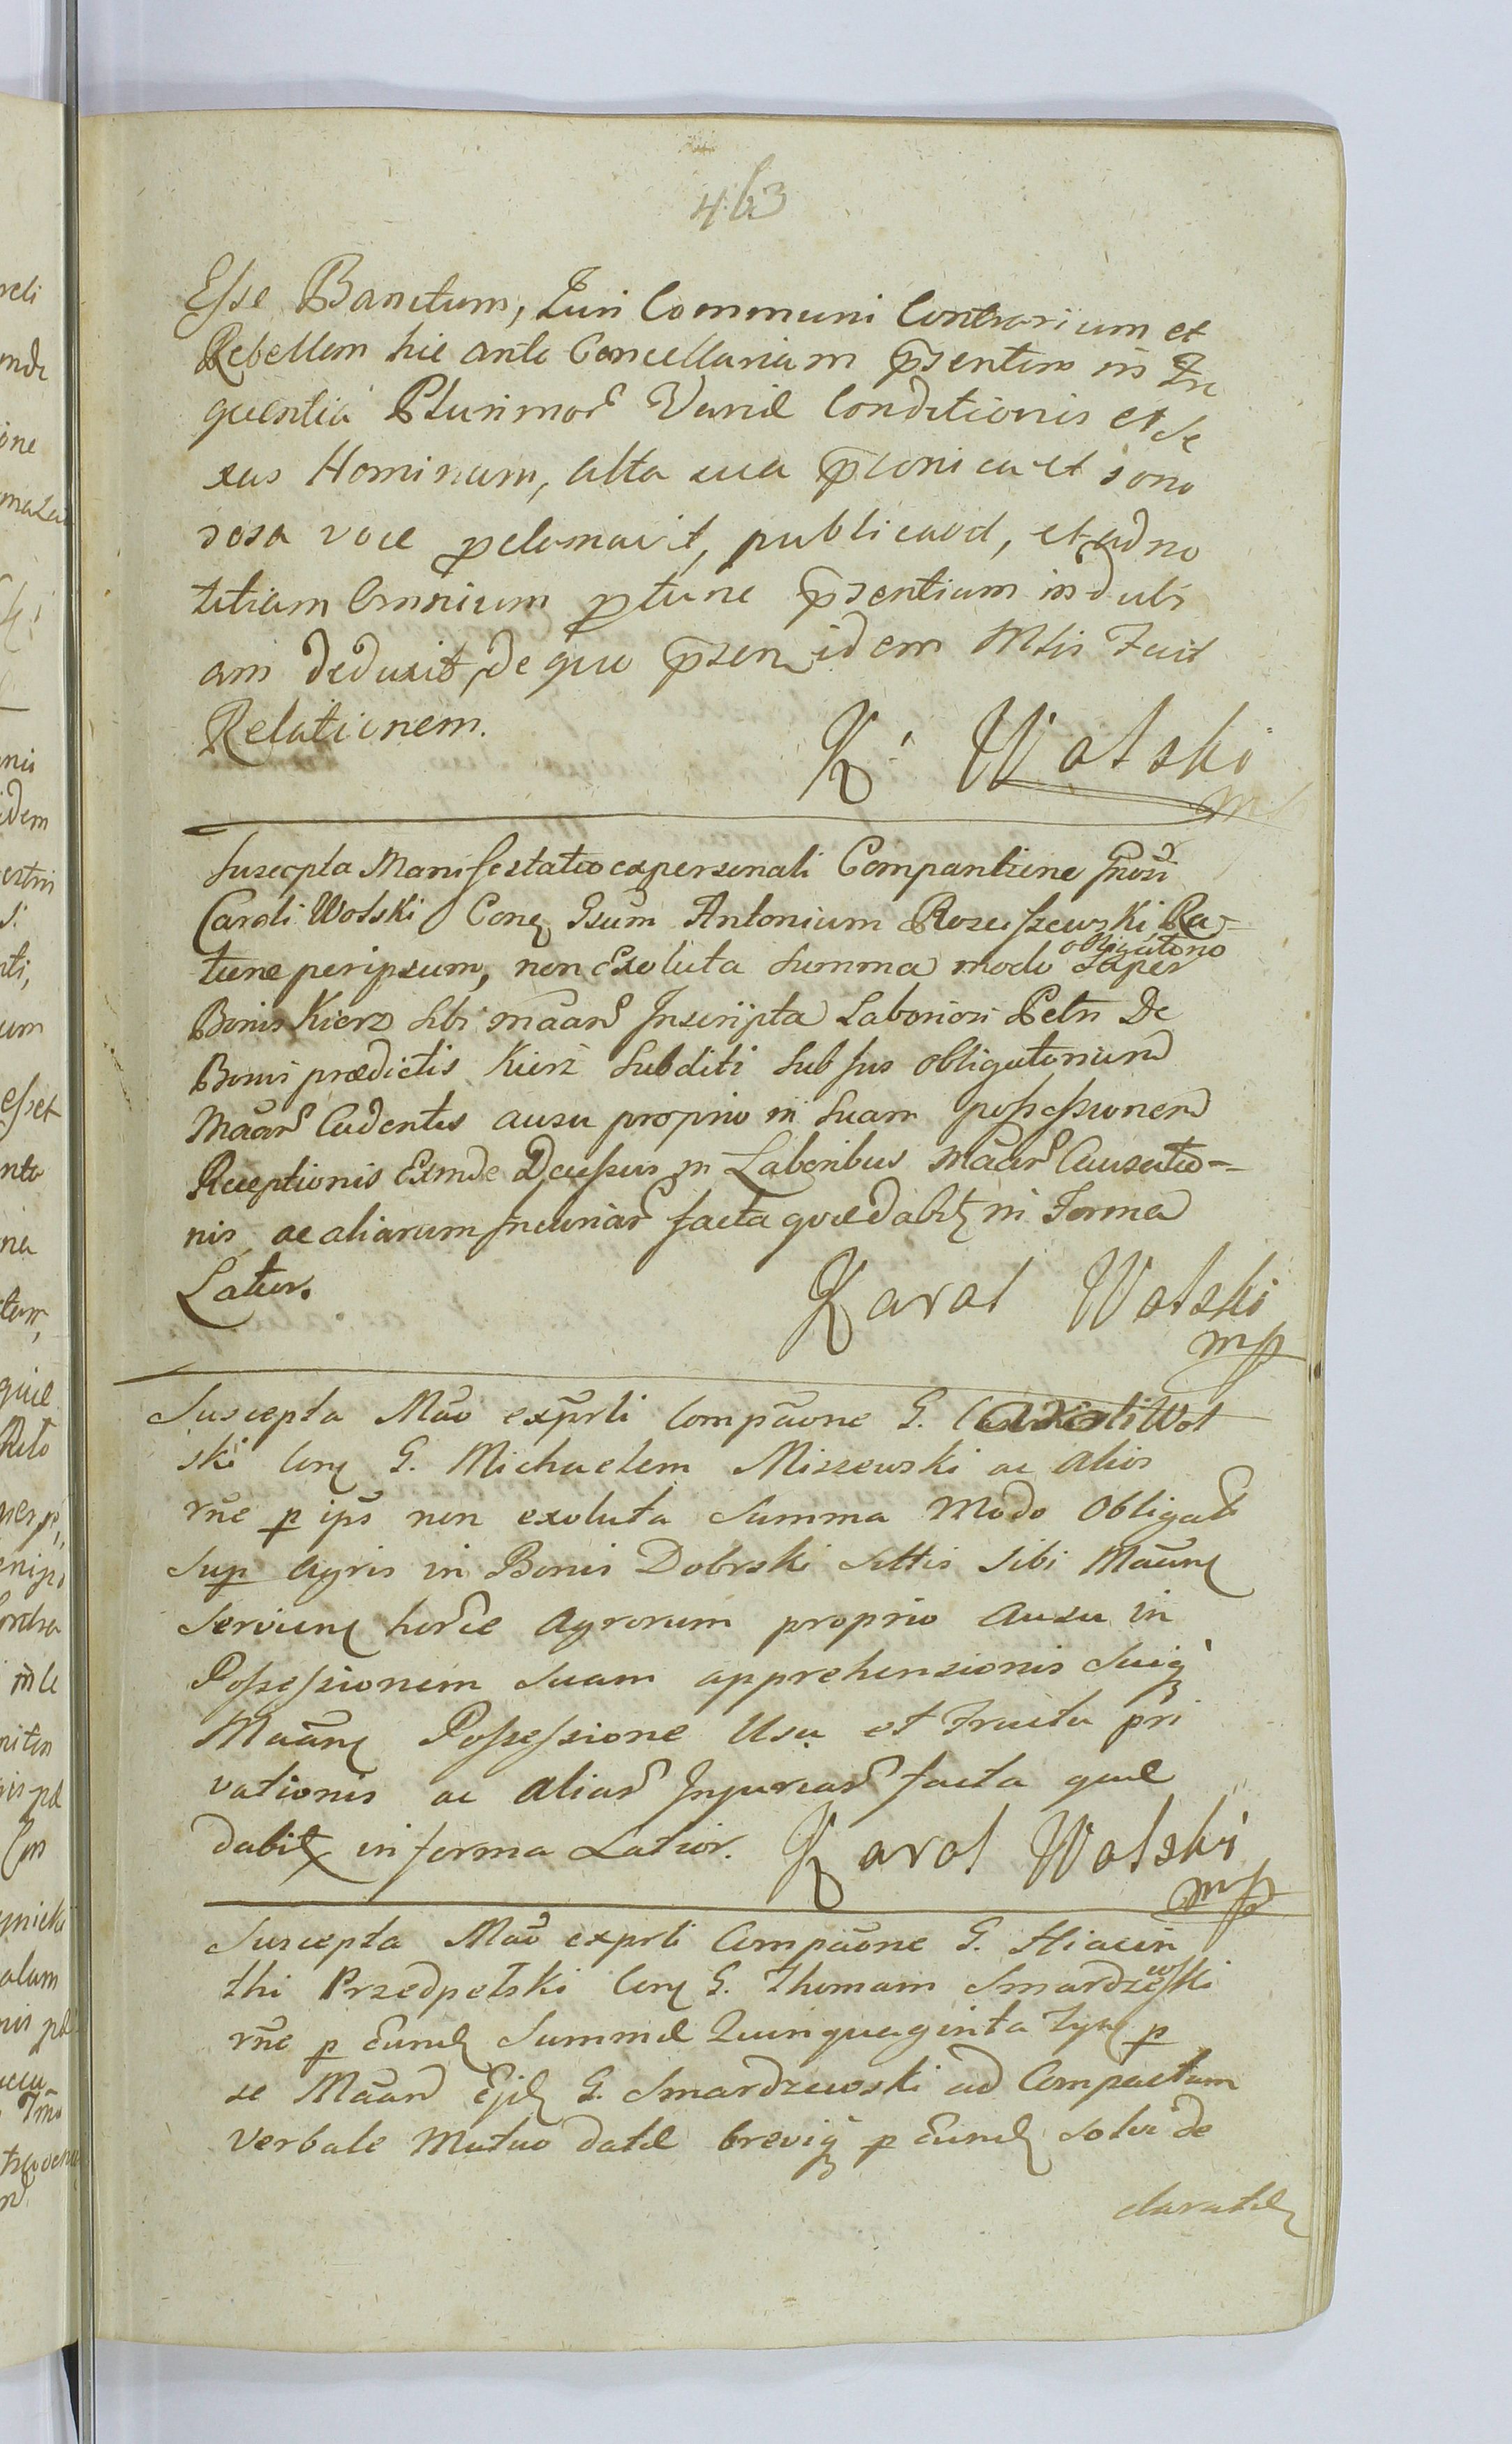 463
Esse Banitum, Juri Communi Contrarium et
Rebellem hic ante Cancellariam p̄sentem in Fre
quentia Plurimor̃ Variæ Conditionis et Se
xus Hominum, alta sua p̄conica et sono
rosa voce p̱clamavit, publicavit, et ad no
titiam Omnium p̱tunc p̄sentium indubi
am deduxit, de quo p̄sen idem Mtis Fecit
Relationem.
K: Wolski
Suscepta Manifestatio ex personali Comparitione Gn̄osi
Caroli Wolski Conq̨ Gsūm Antonium Rosciszewski, Ra=
tione per ipsum, non Exoluta Summa modo obligatorio Super
Bonis Kierz Sibi māar̃ Inscripta Laboriosi Petri De
Bonis prædictis Kierz Subditi Sub Jus obligatorium
Māar̃ Cadentis ausu proprio in Suam possessionem
Receptionis Exinde Decessus in Laboribus māar̃ Causatio=
nis ac aliarum Injuriar̃ facta quæ dabit̨ in Forma
Latior.
Karol Wolski
mp
Suscepta Māo ex p̄rli Compāone G. Caroli Wol
ski Conq̨ G. Michaelem Miszewski ac alios
rn̄e p̱ ips̄ non exoluta Summa Modo Obligato
Sup̱ Agris in Bonis Dobrski Sittis Sibi Māanq̨
Servienq̨ hor̃ce Agrorum proprio Ausu in
Possessionem Suam apprehensionis Suiq̨
Māanq̨ Possessione Usu et Fructu pri
vationis ac Aliar̃ Injuriar̃ facta quæ
dabit̨ in forma Latior.
Karol Wolski
mp
Suscepta Māo ex p̄rli Compāone G. Hiacin
thi Przedpełski Conq̨ G. Thomam Smardzewski
rn̄e p̱ Eund̨ Summæ Quinquaginta Tyn̨ p̱
se Māan̄ Ejd̨ G. Smardzewski ad Compactum
Verbale Mutuo datæ breviq̨ p̱ Eund̨ Solvi de
claratæ